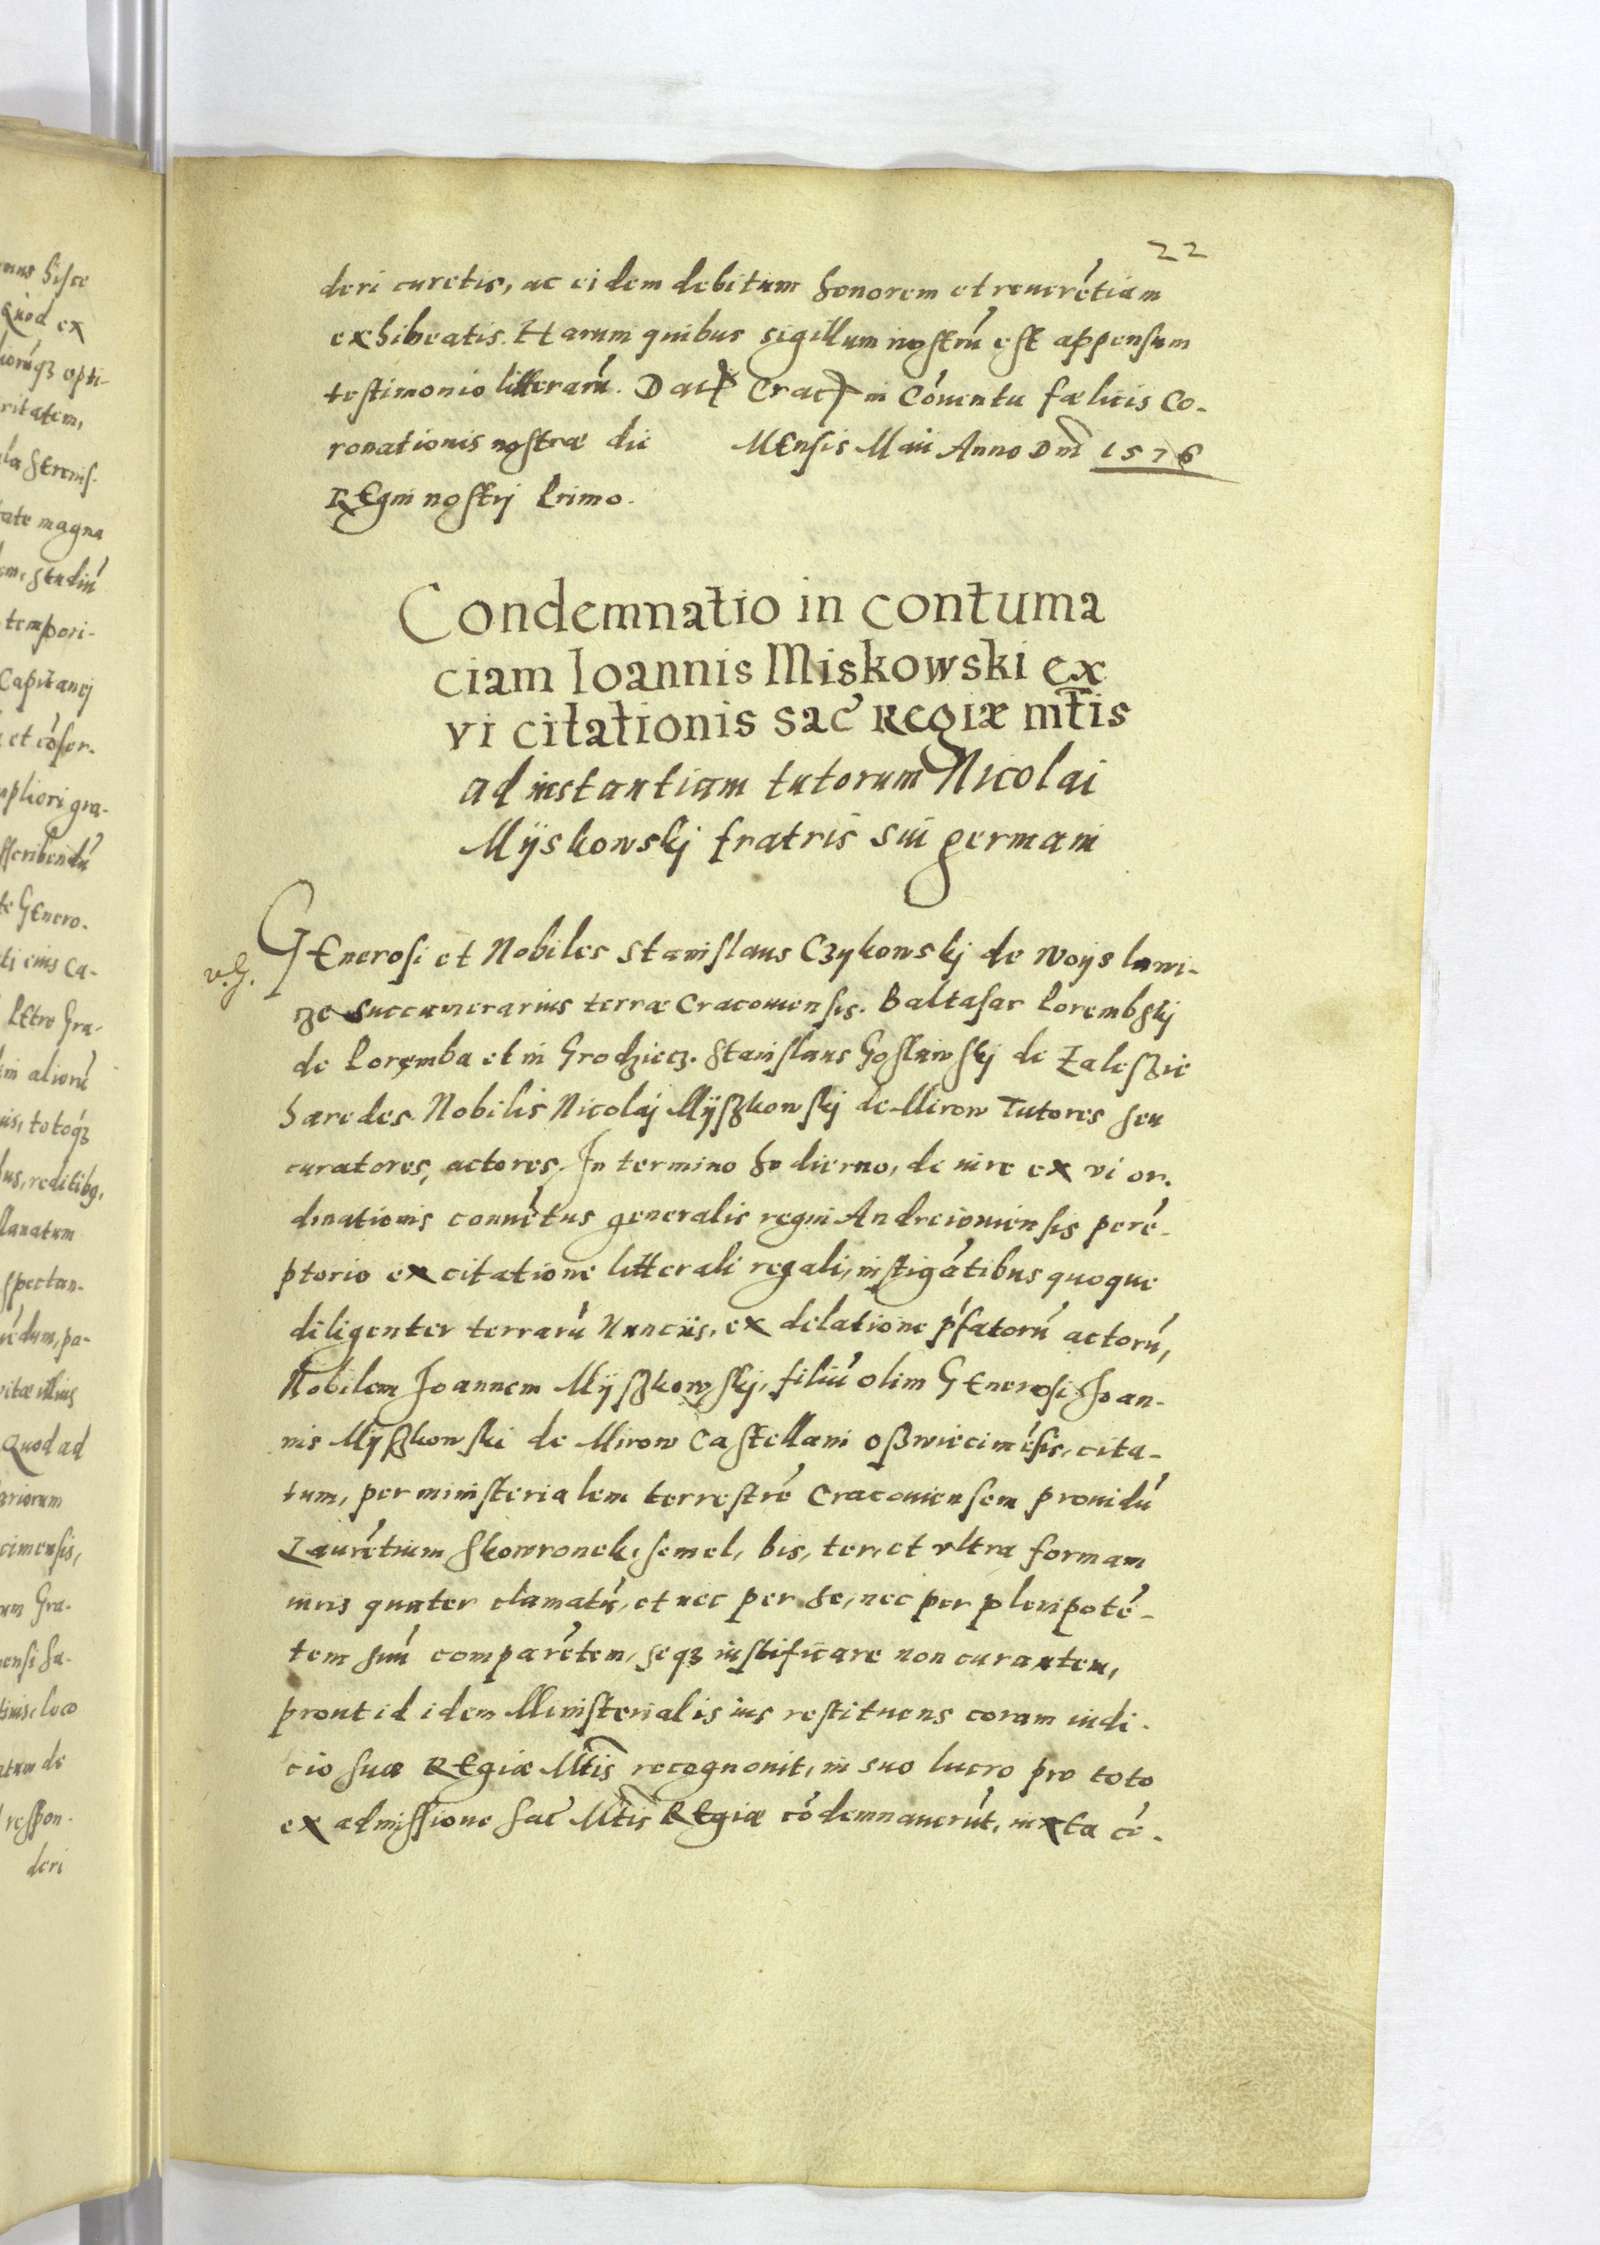 22
deri curetis, ac eidem debitum honorem et reueré́tiam
exhibeatis. Harum quibus sigillum nostrú est appensum
testimonio litterarú. Dat Crac in Cóuentu fælicis Co-
ronationis nostræ die Mensis Maii Anno Dni 1576
Regni nostrj Primo.
Condemnatio in contuma
ciam Ioannis Miskowski ex
vi citationis sac Regiæ mtis
ad instantiam tutorum Nicolai
Myskowskj fratris sui germani
Generosi et Nobiles Stanislaus Czykowskj de Woyslawi-
ze Succamerarius terræ Cracouiensis. Baltasar Porembskj
de Poręmba et in Grodziecz. Stanislaus Goslawskj de Zaleszie
hæredes. Nobilis Nicolaj Myszkowskj de Mirow Tutores seu
curatores, actores. In termino hodierno, de iure ex vi or-
dinationis conuétus generalis regni Andreiouiensis peré-
ptorio ex citatione litterali regali, instigátibus quoque
diligenter terrarú Nunciis, ex delatione pfatorú actorú,
Nobilem Joannem Myszkowskj, filiú olim Generosi Joan-
nis Myszkowski de Mirow Castellani Oswiecimésis, cita-
tum, per ministerialem terrestré Cracouiensem prouidú
Laurétium Skowronek, semel, bis, ter, et vltra formam
iuris quater clamatú, et nec per se, nec per plenipoté-
tem suú comparétem, seqz iustificare non curantem,
prout id idem Ministerialis ius restituens coram iudi-
cio suæ Regiæ Mtis recognouit, in suo lucro pro toto
ex admissione sac Mtis Regiæ códemnauerút, iuxta cé-
mus hisce
Quod ex
ritatem,
tate magna
tempori-
Capitanej
pliori gra-
te Genero-
tj eius Ca-
Petro Gra-
in aliorú
llanatum
spectan-
vitæ illius
Quod ad
cimensis,
um Gra-
respon-
deri